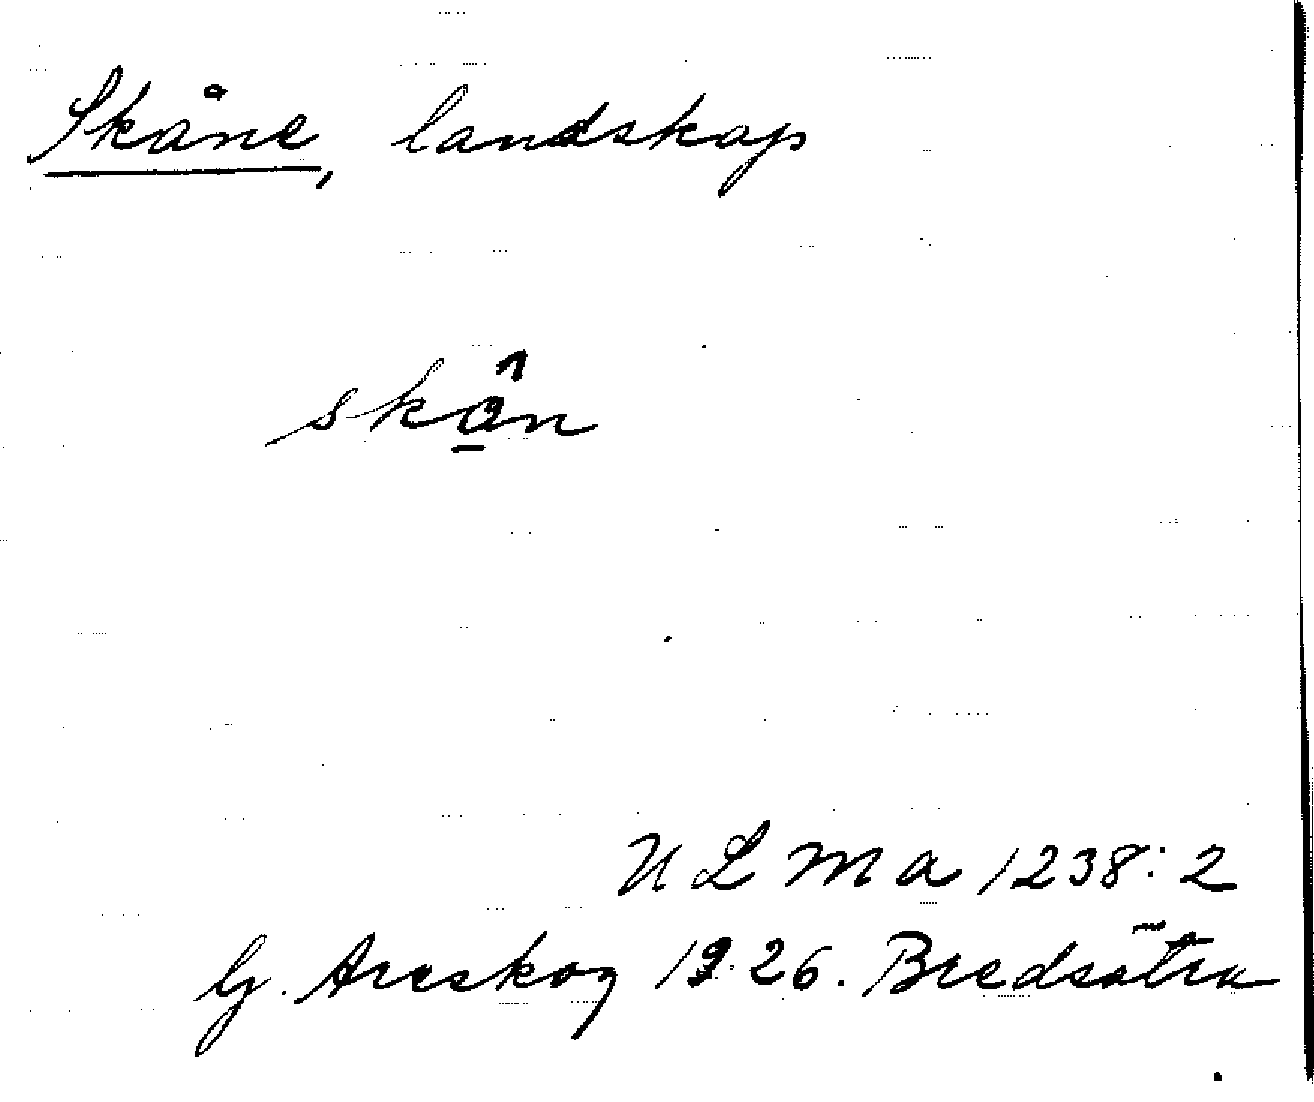 Skåne, landskap
skôn
ULMa 1238:2
G. Areskog 1926. Bredsätra